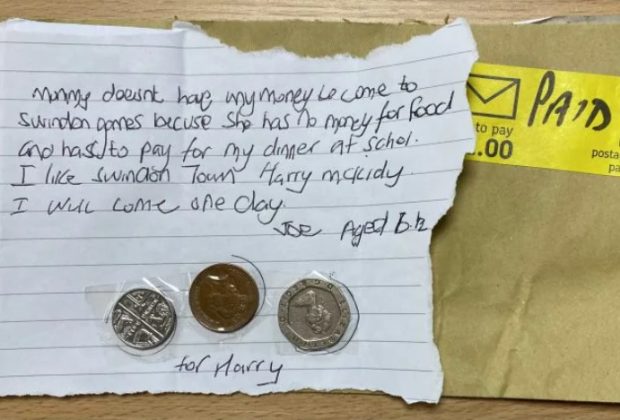 Mummy doesnt have any money to come to
Swindon games becuse she has no money for food
and has to pay for my dinner at schol.
I like Swindon Town Harry mckidy.
I will come one day.
Joe Aged 6½
for Harry
PAID
to pay
.00
posta
pa